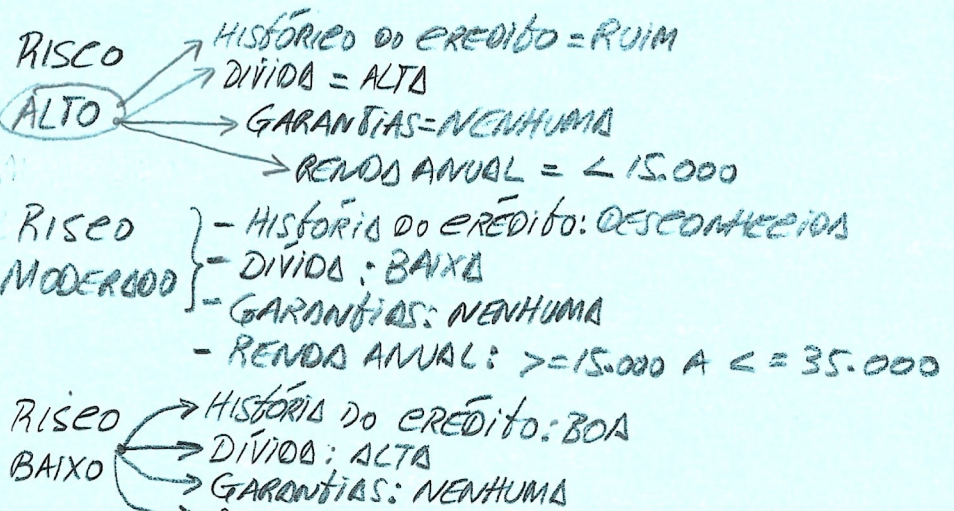 RISCO
ALTO
HISTÓRICO DO CREDITO = RUIM
DIVIDA = ALTA
GARANTIAS=NENHUMA
RENDA ANUAL = < 15.000
RISCO
MODERADO
- HISTÓRIA DO CRÉDITO: DESCONHECIDA
- DÍVIDA: BAIXA
- GARANTIAS: NENHUMA
- RENDA ANUAL: >=15.000 A <= 35.000
RISCO
BAIXO
HISTÓRIA DO CRÉDITO: BOA
DÍVIDA: ALTA
GARANTIAS: NENHUMA